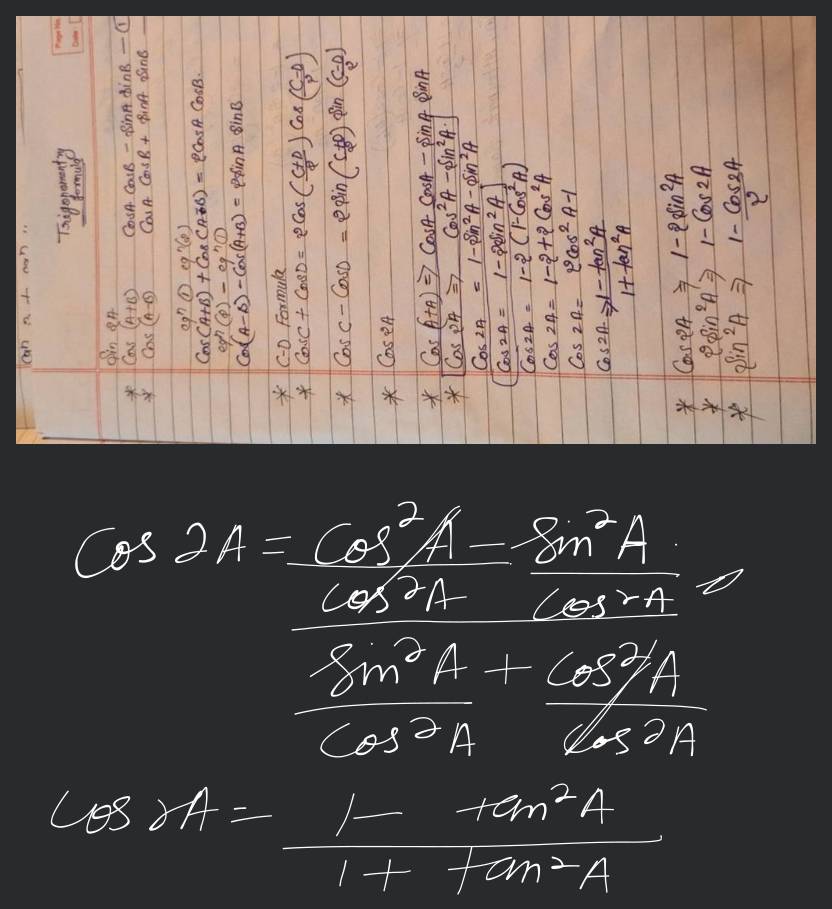 Page No.
Date
Trigonometry
formula
Sin 2A
* Cos (A+B) CosA CosB - SinA SinB - ①
* Cos (A-B) CosA CosB + SinA SinB
eqⁿ ① eqⁿ ②
Cos(A+B) + Cos(A-B) = 2CosA CosB.
eqⁿ ② - eqⁿ ①
Cos(A-B) - Cos(A+B) = 2SinA SinB
* C-D Formula
* CosC + CosD = 2Cos (C+D/2) Cos (C-D/2)
* CosC - CosD = 2Sin (C+D/2) Sin (C-D/2)
* Cos 2A
* Cos(A+A) ⇒ CosA CosA - SinA SinA
* Cos 2A ⇒ Cos²A - Sin²A.
Cos 2A = 1-Sin²A - Sin²A
Cos 2A = 1 - 2Sin²A
Cos 2A = 1-2 (1-Cos²A)
Cos 2A = 1-2+2 Cos²A
Cos 2A = 2Cos²A-1
Cos2A ⇒ 1-tan²A
1+tan²A
* Cos2A ⇒ 1-2Sin²A
* 2Sin²A ⇒ 1-Cos2A
* Sin²A ⇒ 1-Cos2A
2
Cos 2A = Cos²A - Sin²A.
Cos²A Cos²A
Sin²A + Cos²A
Cos²A Cos²A
Cos 2A = 1- tan²A
1+ tan²A